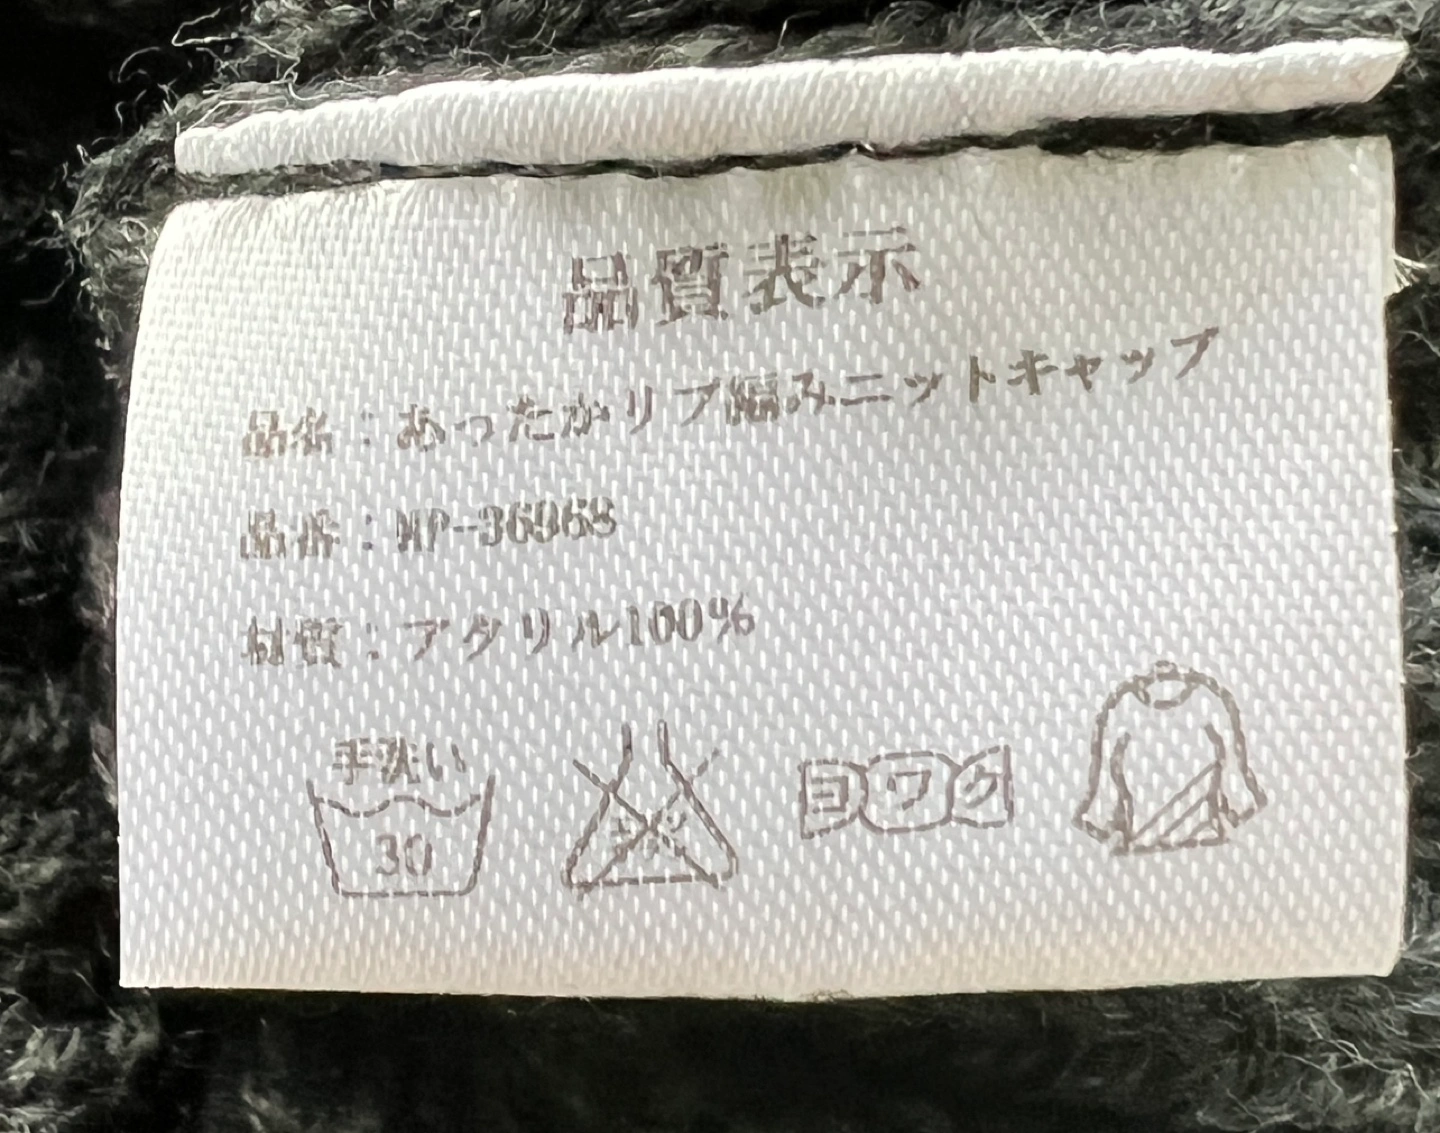 品質表示
品名：あったかリブ編みニットキャップ
品番：MP-36968
材質：アクリル100%
手洗い
30
ヨワク